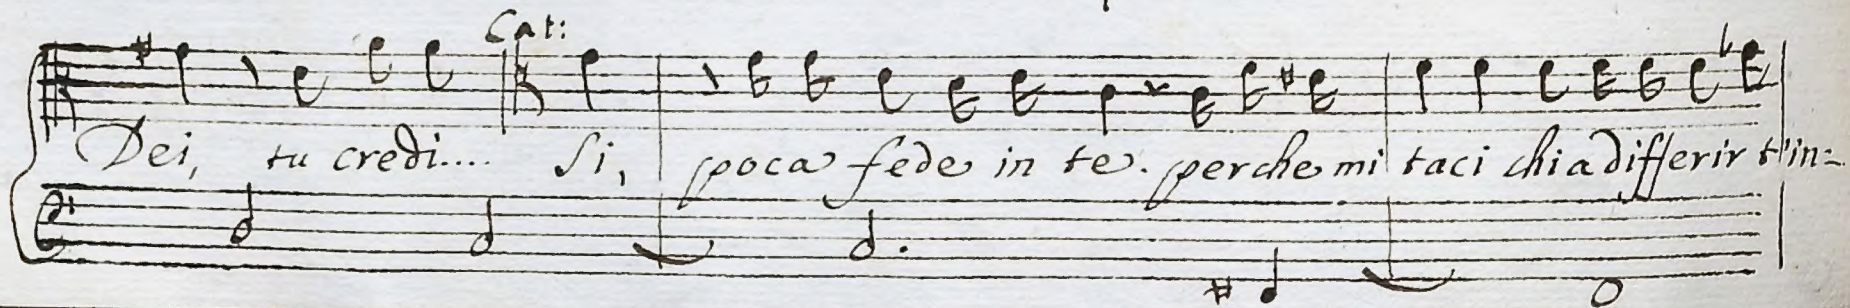 Cat:
Dei, tu credi.... Si, poca fede in te. perche mi taci chi a differir t'in=